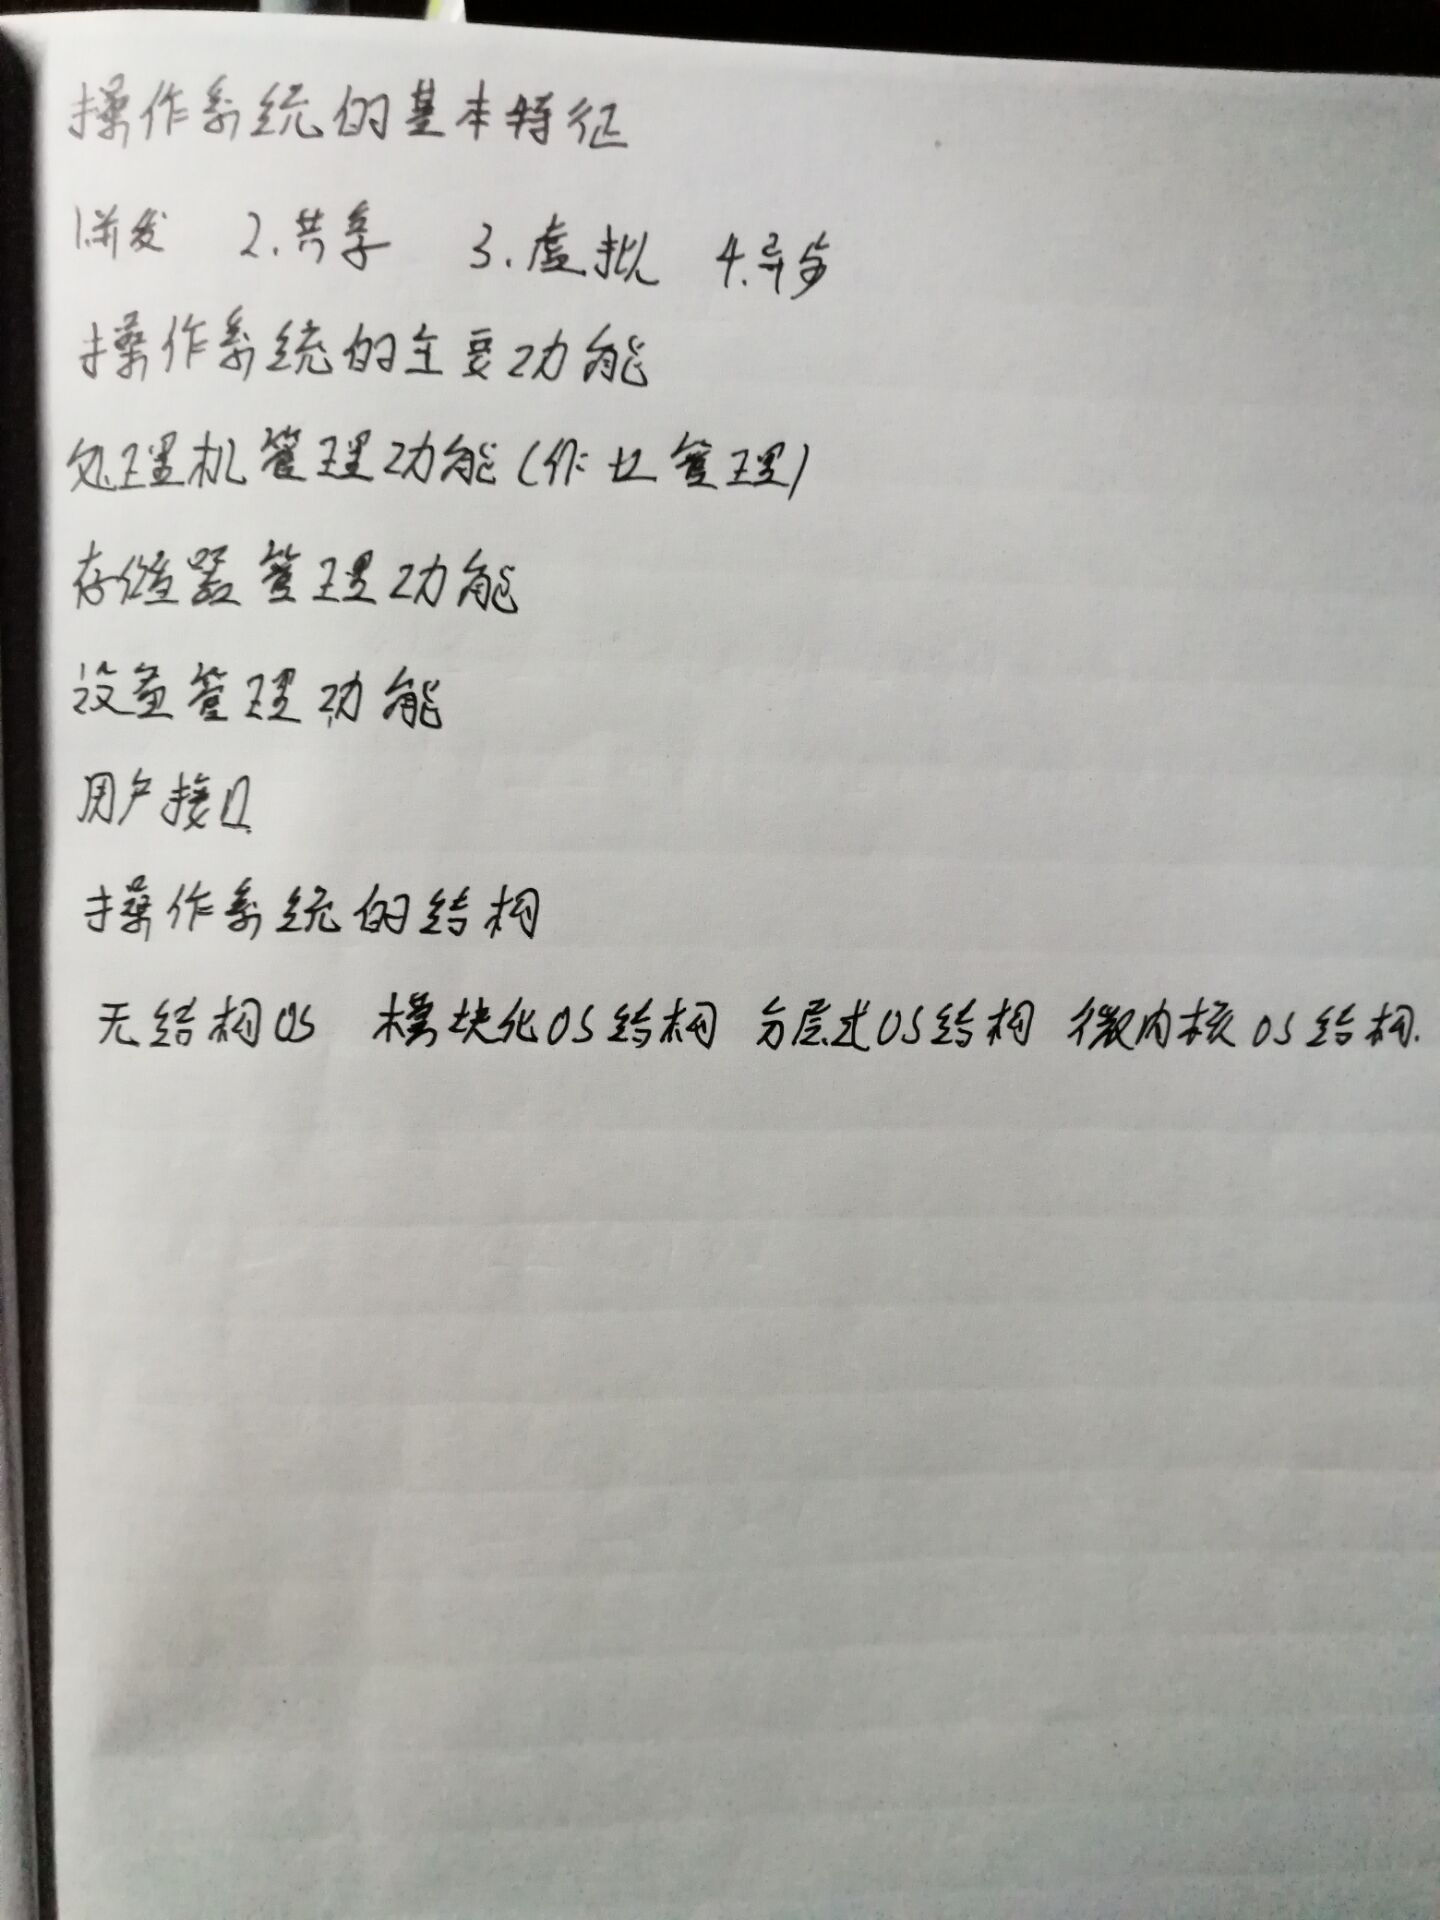 操作系统的基本特征
1.并发 2.共享 3.虚拟 4.异步
操作系统的主要功能
处理机管理功能(作业管理)
存储器管理功能
设备管理功能
用户接口
操作系统的结构
无结构OS 模块化OS结构 分层式OS结构 微内核OS结构.